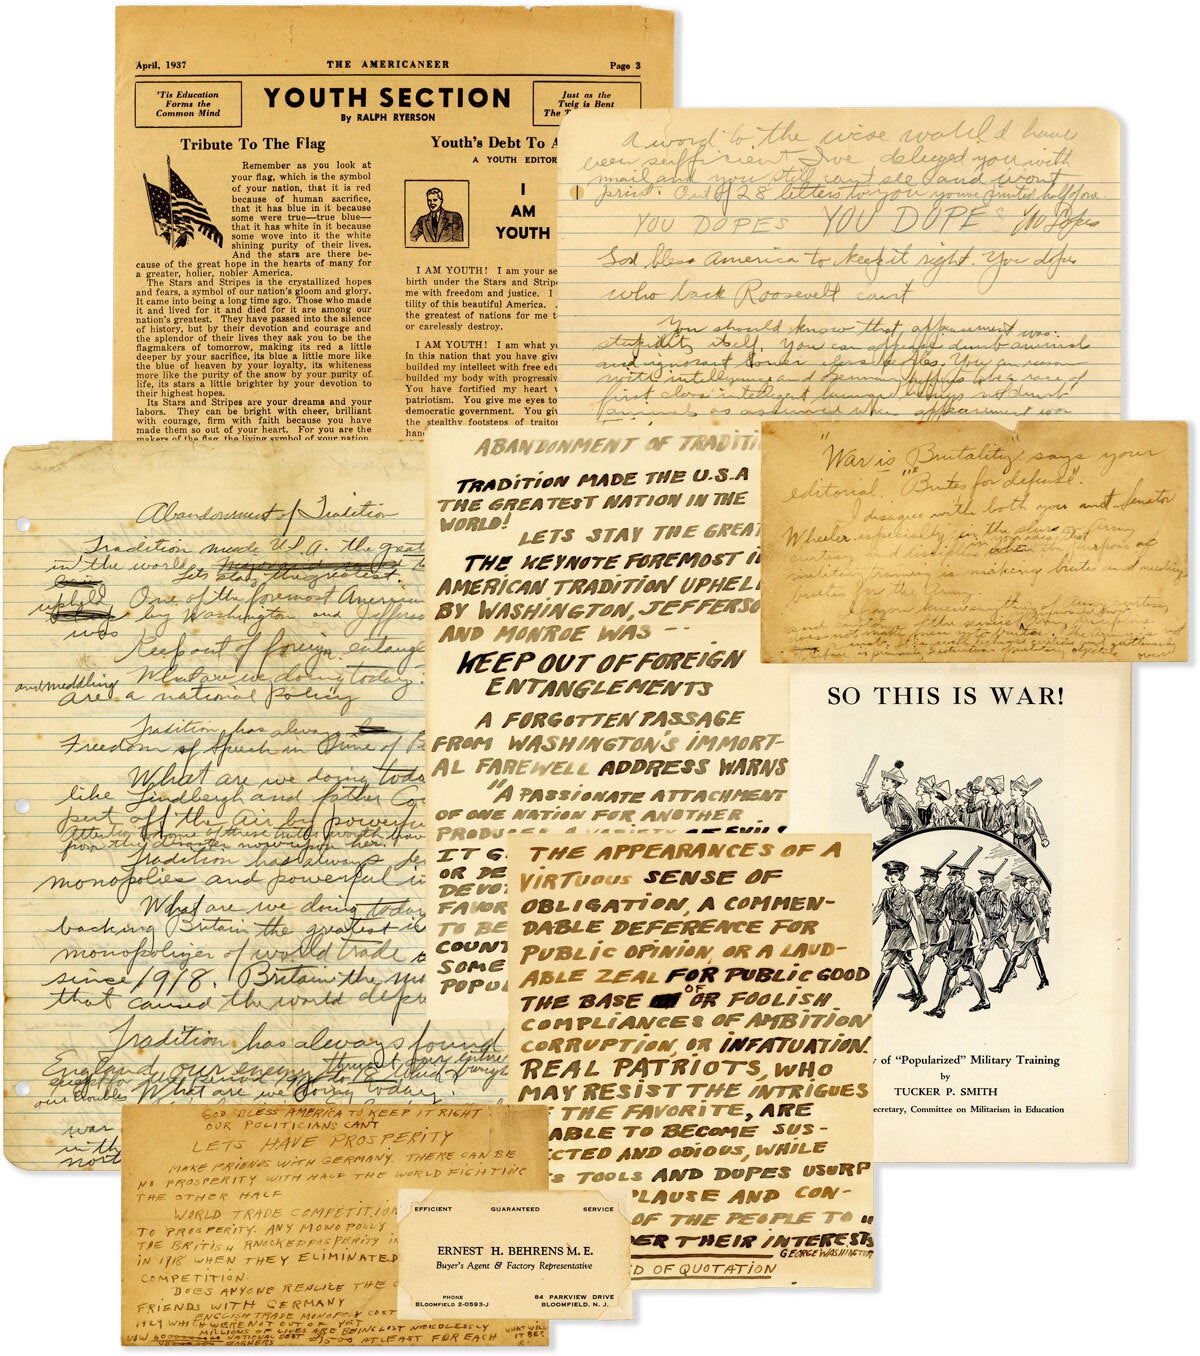 April, 1937
THE AMERICANEER
Page 3
'Tis Education
Forms the
Common Mind
YOUTH SECTION
By RALPH RYERSON
Just as the
Twig is Bent
The T
Tribute To The Flag
Remember as you look at
your flag, which is the symbol
of your nation, that it is red
because of human sacrifice,
that it has blue in it because
some were true—true blue—
that it has white in it because
some wove into it the white
shining purity of their lives.
And the stars are there be-
cause of the great hope in the hearts of many for
a greater, holier, nobler America.
The Stars and Stripes is the crystallized hopes
and fears, a symbol of our nation's gloom and glory.
It came into being a long time ago. Those who made
it and lived for it and died for it are among our
nation's greatest. They have passed into the silence
of history, but by their devotion and courage and
the splendor of their lives they ask you to be the
flagmakers of tomorrow, making its red a little
deeper by your sacrifice, its blue a little more like
the blue of heaven by your loyalty, its whiteness
more like the purity of the snow by your purity of
life, its stars a little brighter by your devotion to
their highest hopes.
Its Stars and Stripes are your dreams and your
labors. They can be bright with cheer, brilliant
with courage, firm with faith because you have
made them so out of your heart. For you are the
makers of the flag, the living symbol of your nation
Youth's Debt To A
A YOUTH EDITOR
I
AM
YOUTH
I AM YOUTH! I am your se
birth under the Stars and Stripe
me with freedom and justice. I
tility of this beautiful America.
the greatest of nations for me t
or carelessly destroy.
I AM YOUTH! I am what yo
In this nation that you have give
builded my intellect with free edu
builded my body with progressiv
You have fortified my heart
patriotism. You give me eyes to
democratic government. You giv
the stealthy footsteps of traitor
hand
A word to the wise would have
been sufficient I've deluged you with
mail and you still can't see and wont
print. Out of 28 letters to you youve printed half of one
YOU DOPES YOU DOPES You Dopes
God bless America to keep it right. You dopes
who back Roosevelt cant
You should know that appeasement was
stupidity itself. You can appease dumb animals
and ignorant
first class intelligent human beings not dumb
animals as assumed when appeasement was
"War is Brutality" says your
editorial, "Brutes for defense".
I disagree with both you and Senator
Wheeler especially in
military training is making brutes and needing
brutes for the Army.
Abandonment of Tradition
Tradition made U.S.A. the great
in the world.
Lets stay the greatest.
One of the foremost American
upheld by Washington and Jefferso
was
Keep out of foreign entangle
and meddling What are we doing today.
are a national policy
Tradition has always
Freedom of Speech in Time of Pe
What are we doing toda
like Lindbergh and father Co
put off the air by powerfu
Tradition has always
monopolies and powerful i
What are we doing today
backing Britain the greatest
monopolizer of world trade
since 1918. Britain the
that caused the world depre
Tradition has always found
England, our enemy
our troubles. What are we doing today.
war
in th
ABANDONMENT OF TRADITI
TRADITION MADE THE U.S.A
THE GREATEST NATION IN THE
WORLD!
LETS STAY THE GREAT
THE KEYNOTE FOREMOST I
AMERICAN TRADITION UPHEL
BY WASHINGTON, JEFFERSO
AND MONROE WAS --
KEEP OUT OF FOREIGN
ENTANGLEMENTS
A FORGOTTEN PASSAGE
FROM WASHINGTON'S IMMORT-
AL FAREWELL ADDRESS WARNS
"A PASSIONATE ATTACHMENT
OF ONE NATION FOR ANOTHER
PRODUCES A VARIETY OF EVILS
IT G
OR DE
DEVOT
FAVOR
TO BE
COUNT
SOME
POPU
THE APPEARANCES OF A
VIRTUOUS SENSE OF
OBLIGATION, A COMMEN-
DABLE DEFERENCE FOR
PUBLIC OPINION, OR A LAUD-
ABLE ZEAL FOR PUBLIC GOOD
THE BASE OF OR FOOLISH
COMPLIANCES OF AMBITION
CORRUPTION, OR INFATUATION.
REAL PATRIOTS, WHO
MAY RESIST THE INTRIGUES
F THE FAVORITE, ARE
ABLE TO BECOME SUS-
ECTED AND ODIOUS, WHILE
S TOOLS AND DUPES USURP
PLAUSE AND CON-
OF THE PEOPLE TO
DER THEIR INTERESTS"
GEORGE WASHINGTON
D OF QUOTATION
SO THIS IS WAR!
y of "Popularized" Military Training
by
TUCKER P. SMITH
ecretary, Committee on Militarism in Education
GOD BLESS AMERICA TO KEEP IT RIGHT
OUR POLITICIANS CANT
LETS HAVE PROSPERITY
MAKE FRIENDS WITH GERMANY. THERE CAN BE
NO PROSPERITY WITH HALF THE WORLD FIGHTING
THE OTHER HALF
WORLD TRADE COMPETITION
TO PROSPERITY. ANY MONOPOLLY
THE BRITISH KNOCKED PROSPERITY IN
IN 1918 WHEN THEY ELIMINATED
COMPETITION.
DOES ANYONE REALIZE THE C
FRIENDS WITH GERMANY
ENGLISH TRADE MONOPOLY COST
1929 WHICH WERE NOT OUT OF YET
MILLIONS OF LIVES ARE BEING LOST NEEDLESSLY
NOW NATIONAL DEBT AT LEAST FOR EACH
WHAT WILL
IT BE?
EFFICIENT GUARANTEED SERVICE
ERNEST H. BEHRENS M. E.
Buyer's Agent & Factory Representative
PHONE
BLOOMFIELD 2-0593-J
84 PARKVIEW DRIVE
BLOOMFIELD, N. J.